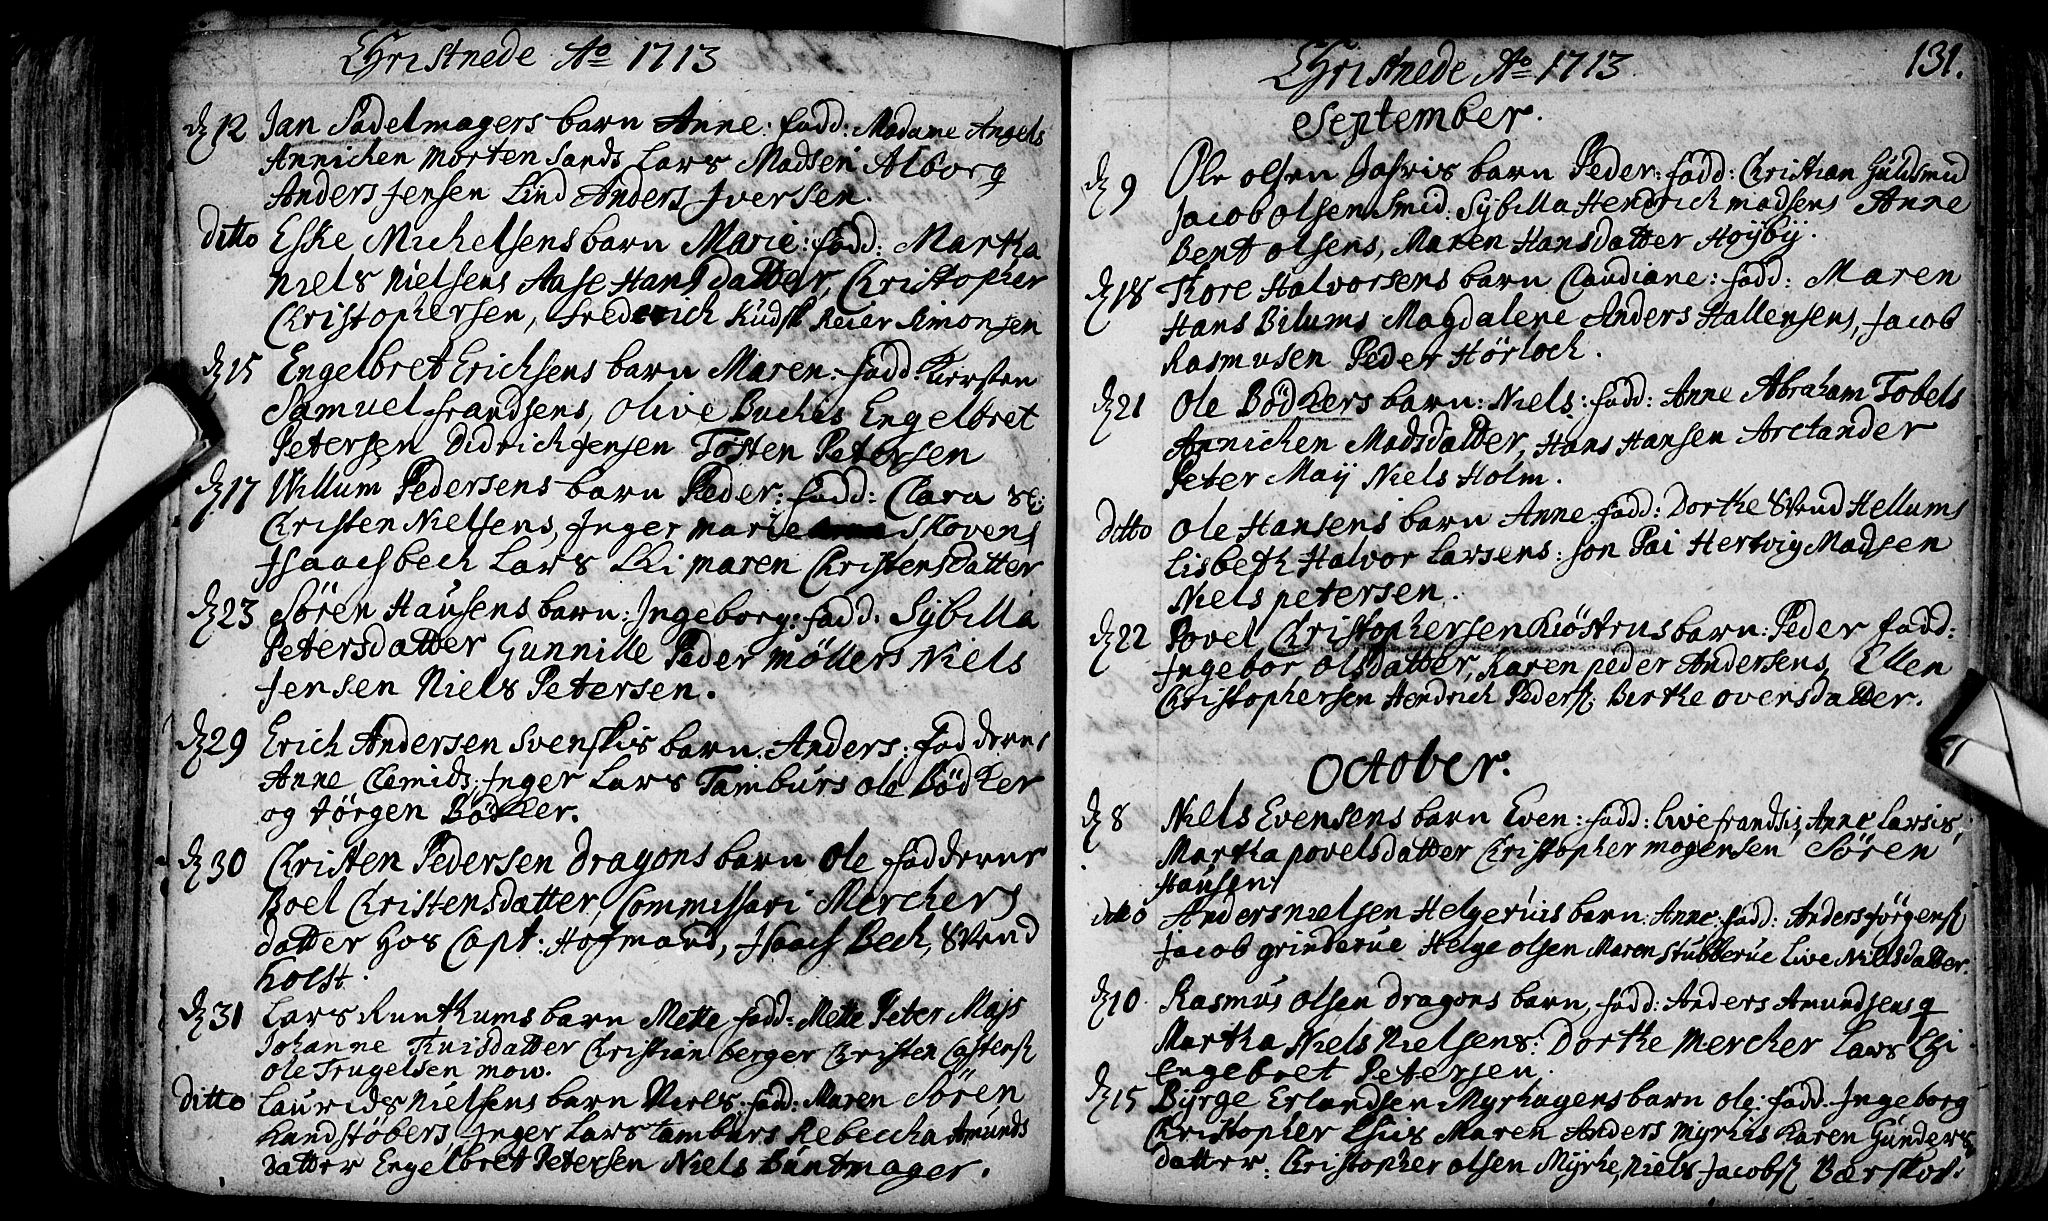 Christnede Ao 1713
dz 12 Jan Sadelmagers barn Anne: fadd: Madame Angels
Annichen Morten Sands Lars Madsen Alborg
Anders Jensen Lind Anders Iversen.
ditto Eske Michelsens barn Marie: fadd: Martha
Niels Nielsens Aase Hansdatter, Christopher
Christophersen, Frederich Kudsk Reier Simonsen
dz 15 Engelbret Erichsens barn Maren: fadd: Kiersten
Samuel Frandsens, Olive Buchis Engelbret
Petersen Didrich Jensen Tosten Petersen
dz 17 Willum Pedersens barn Peder: fadd: Clara Sl:
Christen Nielsens, Inger Marie Skovens
Isaach bech Lars Chi maren Christensdatter
dz 23 Sören Hausens barn: Ingeborg: fadd: Sybilla
Petersdatter Gunnille Peder möllers Niels
Jensen Niels Petersen.
dz 29 Erich Andersen Svenskis barn Anders: fadderne
Anne Clemids, Inger Lars Tamburs ole Bödker
og Jörgen Bödker.
dz 30 Christen Pedersen dragons barn ole fadderne
Boel Christensdatter, Commissari Merchers
datter hos Capt: Hofmand, Isaach Bech, Svend
holst.
dz 31 Lars Runthums barn Mette fadd: Mette Peter Majs
Johanne Knisdatter Christian berger Christen Castens
ole Trugelsen mow.
ditto Laurids Nielsens barn Niels, fadd: Maren Sören
Randstöbers Inger Lars tamburs Rebeccha Amunds
datter Engelbret Petersen Niels Buntmager.
131.
Christnede Ao 1713
September.
dz 9 Ole olsen Jahris barn Peder: fadd: Christian Guldsmed
Jacob olsen Smid: Sybilla Hendrich madsens Anne
Bent olsens, Maren Hansdatter Höyby.
dz 18 Thore Halvorsens barn Claudiane: fadd: Maren
Hans Bilums Magdalene Anders Hallensens, Jacob
Rasmusen Peder Hörloch.
dz 21 Ole Bödkers barn: Niels: fadd: Anne Abraham Tobels
Annichen Madsdatter, Hans Hansen Arctander
Peter Maij Niels Holm.
ditto Ole Hansens barn Anne: fadd: Dorthe Svend Hellums
Lisbeth Halvor Larsens: Jon Pai Hertvig Madsen
Niels petersen.
dz 22 Povel Christophersen Klöstrus barn: Peder fadd:
Ingebor olsdatter, Karen peder Andersens, Ellen
Christophersen Hendrich Peders: Birthe oversdatter.
October.
dz 8 Niels Evensens barn Even: fadd: Live frandsis, Anne Larsis,
Martha povelsdatter Christopher mogensen Sören
Hausen
ditto Anders nielsen Helgeruis barn: Anne: fadd: Anders Jörgens
Jacob grinderue Helge olsen Maren Stubberue Live Nielsdatter.
dz 10 Rasmus olsen dragons barn, fadd: Anders Amundsens q
Martha Niels Nielsens: Dorthe Mercher Lars Chi
Engebret Petersen.
dz 15 Byrge Erlandsen Myrhagens barn ole: fadd: Ingeborg
Christopher Ihus Maren Anders myrhis Karen Gunders
datter: Christopher olsen Myrhe, Niels Jacobs Bærskov.